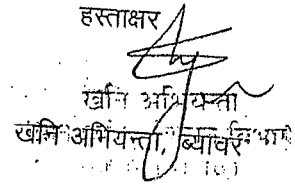 हस्ताक्षर
खनि अभियन्ता
खनि अभियन्ता, ब्यावर